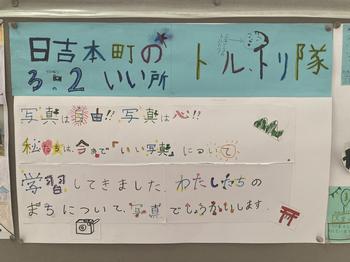 日吉本町の トル、トリ隊
3.2 いい所
写真は自由!!写真は心!!
私たちは、今まで「いい写真」について
学習してきました。わたしたちの
まちについて、写真でしょうかいします。